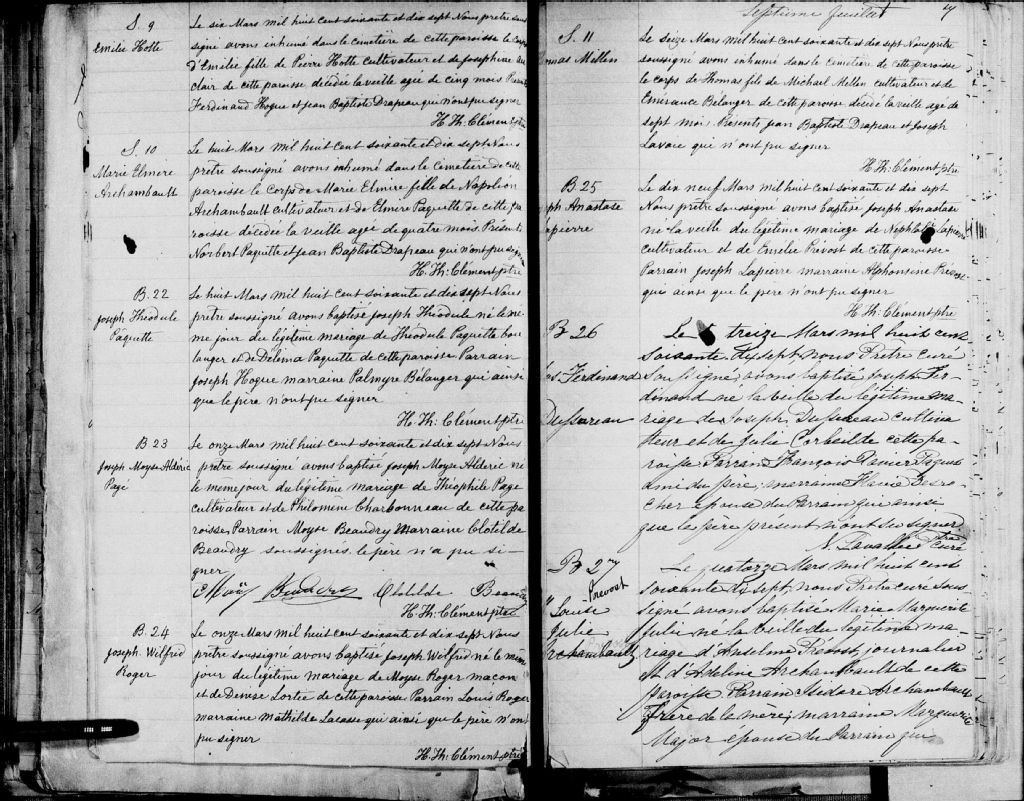 S. 9
Emélie Hotte
Le six Mars mil huit cent soixante et dix sept Nous prêtre sous
signé avons inhumé dans le cemetière de cette paroisse le corps
d'Emélie fille de Pierre Hotte cultivateur et de Josephine
clair de cette paroisse décédée la veille agée de cinq mois
Ferdinand Hogue et Jean Baptiste Drapeau qui n'ont pu signer
H. Th: Clément ptre
S. 10
Marie Elmire
Archambault
Le huit Mars mil huit cent soixante et dix sept Nous
prêtre soussigné avons inhumé dans le cemetière de cette
paroisse le corps de Marie Elmire fille de Napoléon
Archambault cultivateur et de Elmire Paquette de cette pa
roisse décédée la veille agée de quatre mois. Présents
Norbert Paquette et Jean Baptiste Drapeau qui n'ont pu signer
H. Th: Clément ptre
B. 22
Joseph Théodule
Paquette
Le huit Mars mil huit cent soixante et dix sept Nous
prêtre soussigné avons baptisé Joseph Théodule né le mê
me jour du légitime mariage de Théodule Paquette bou
langer et de Délema Paquette de cette paroisse Parrain
Joseph Hogue marraine Palmyre Bélanger qui ainsi
que le père n'ont pu signer
H. Th: Clément ptre
B. 23
Joseph Moyse Alderic
Pagé
Le onze Mars mil huit cent soixante et dix sept Nous
prêtre soussigné avons baptisé Joseph Moyse Alderic né
le meme jour du légitime mariage de Théophile Page
cultivateur et de Philomène Charbonneau de cette pa
roisse. Parrain Moyse Beaudry Marraine Clotilde
Beaudry soussignés le père n'a pu si-
gner
Clotilde
H. Th: Clément ptre
B. 24
Joseph. Wilfrid
Roger
Le onze Mars mil huit cent soixante et dix sept Nous
prêtre soussigné avons baptisé Joseph Wilfrid né le même
jour du légitime mariage de Moyse Roger maçon
et de Denese Lortie de cette paroisse Parrain Louis Roger
marraine Mathilde Lacasse qui ainsi que le père n'ont
pu signer
H. Th: Clément ptre
Septième feuillet
S. 11
omas Mellen
Le seize Mars mil huit cent soixante et dix sept Nous prêtre
soussigné avons inhumé dans le cemetière de cette paroisse
le corps de Thomas fils de Michael Mellen cultivateur et de
Emerance Bélanger de cette paroisse décédé la veille agé de
sept mois. Présents Jean Baptiste Drapeau et Joseph
Lavoie qui n'ont pu signer
H. Th: Clément ptre
B. 25
ph Anastase
apierre
Le dix neuf Mars mil huit cent soixante et dix sept
Nous prêtre soussigné avons baptisé Joseph Anastase
né la veille du légitime mariage de Lapierre
cultivateur et de Emélie Prévost de cette paroisse
Parrain Joseph Lapierre marraine Alphonsine Prévost
qui ainsi que le père n'ont pu signer
H. Th: Clément ptre
B 26
Ferdinand
Dussureau
Le treize Mars mil huit cent
soixante dix sept, nous Prêtre curé
soussigné, avons baptisé Joseph Fer-
dinand né la veille du légitime ma-
riage de Joseph Dussureau cultiva
teur et de Julie Corbeil de cette pa-
roisse Parrain François
ami du père, marraine
cher épouse du Parrain qui ainsi
que le père présent n'ont su signer
N. Lavallée Ptre Curé
B 2
Prevost
Louise
Julie
Archambault
Le quatorze Mars mil huit cent
soixante dix sept, nous Prêtre curé sous-
signé avons baptisé Marie Marguerite
Julie né la veille du légitime ma-
riage d'Anselme Prevost journalier
et d'Adeline Archambault de cette
Paroisse Parrain Medore Archambault
frère de la mère; marraine Marguerite
Major épouse du Parrain qui